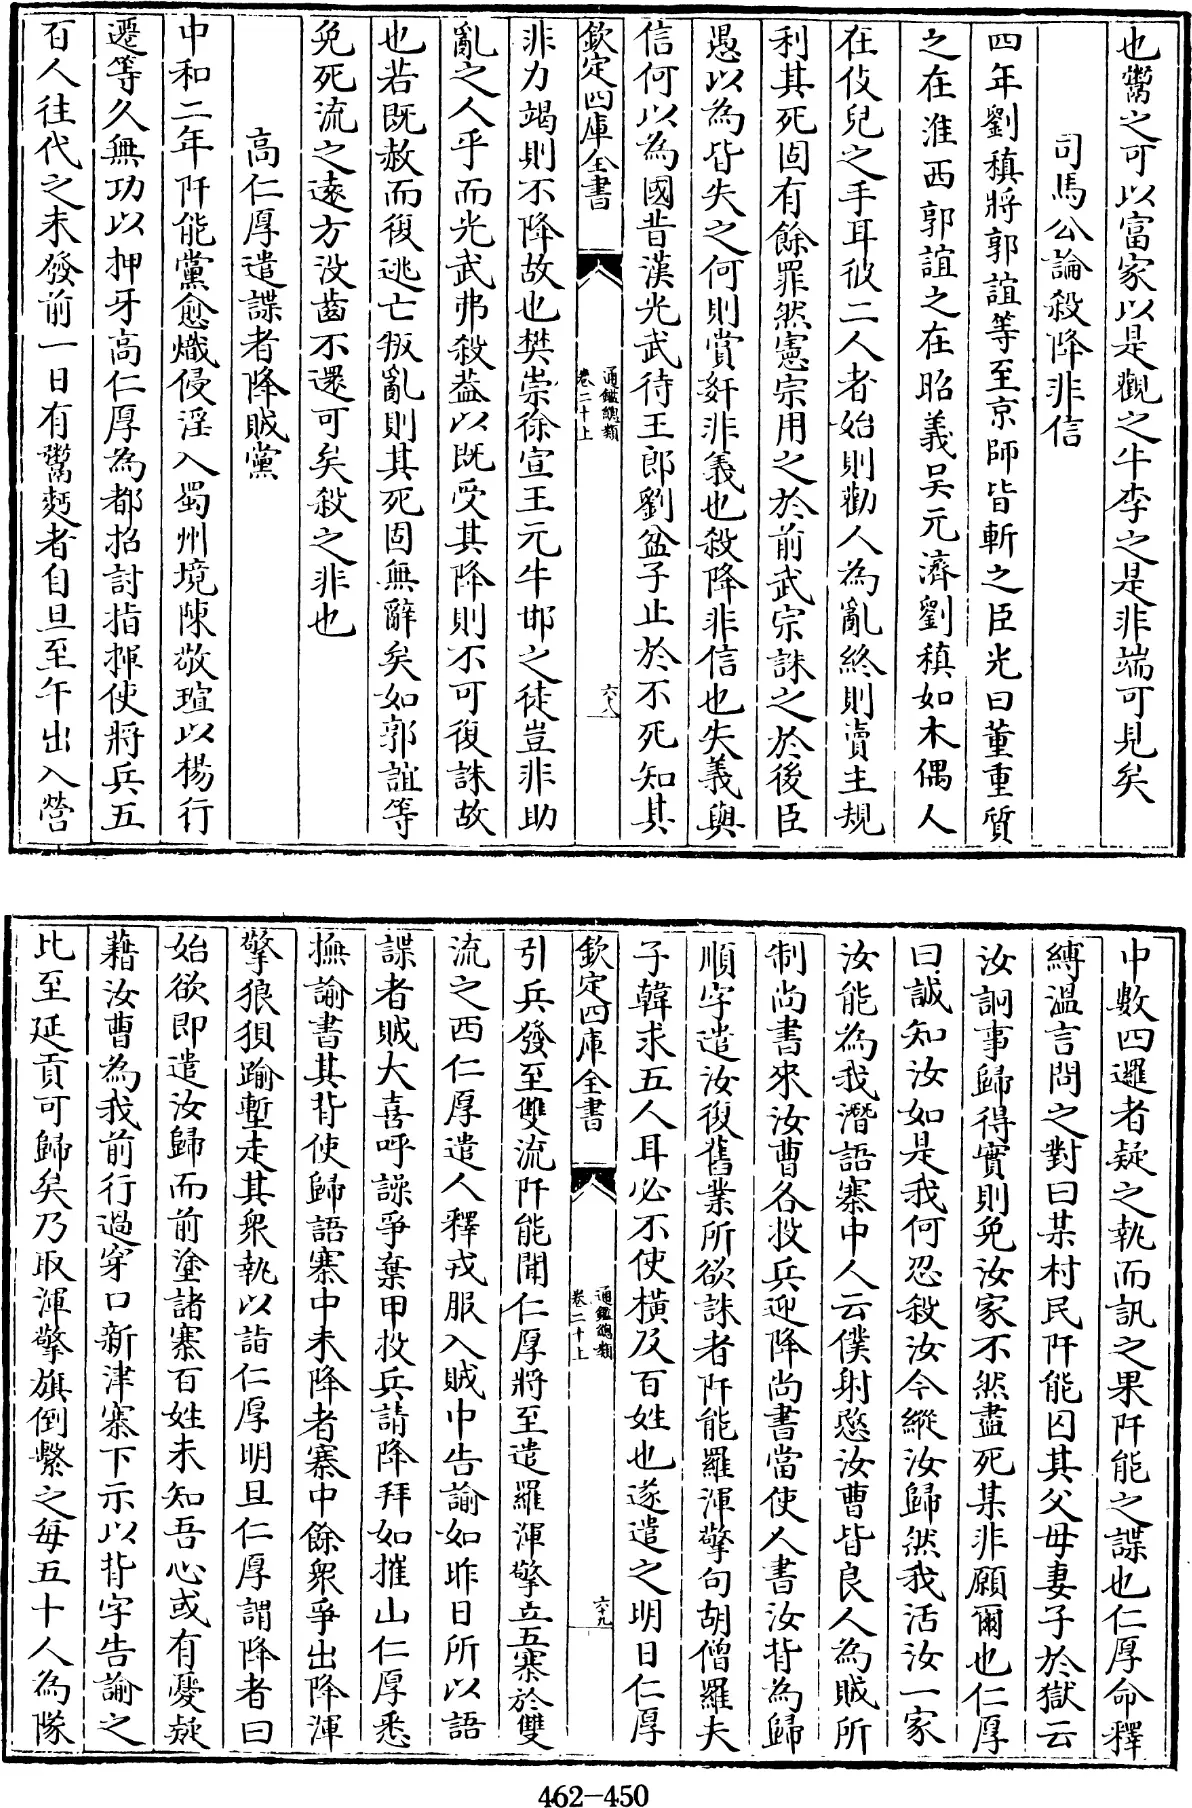 也鬻之可以富家以是觀之牛李之是非端可見矣
司馬公論殺降非信
四年劉稹將郭誼等至京師皆斬之臣光曰董重質
之在淮西郭誼之在昭義吴元濟劉稹如木偶人
在伎兒之手耳彼二人者始則勸人為亂終則賣主規
利其死固有餘罪然憲宗用之於前武宗誅之於後臣
愚以為皆失之何則賞奸非義也殺降非信也失義與
信何以為國昔漢光武待王郎劉盆子止於不死知其
欽定四庫全書
通鑑總類
卷二十上
六八
非力竭則不降故也樊崇徐宣王元牛邯之徒豈非助
亂之人乎而光武弗殺蓋以既受其降則不可復誅故
也若既赦而復逃亡叛亂則其死固無辭矣如郭誼等
免死流之遠方没齒不還可矣殺之非也
高仁厚遣諜者降賊黨
中和二年阡能黨愈熾侵淫入蜀州境陳敬瑄以楊行
遷等久無功以押牙高仁厚為都招討指揮使將兵五
百人往代之未發前一日有鬻麫者自旦至午出入營
中數四邏者疑之執而訊之果阡能之諜也仁厚命釋
縛溫言問之對曰某村民阡能囚其父母妻子於獄云
汝詗事歸得實則免汝家不然盡死某非願爾也仁厚
曰誠知汝如是我何忍殺汝今縱汝歸然我活汝一家
汝能為我潛語寨中人云僕射愍汝曹皆良人為賊所
制尚書來汝曹各投兵迎降尚書當使人書汝背為歸
順字遣汝復舊業所欲誅者阡能羅渾擎句胡僧羅夫
子韓求五人耳必不使橫及百姓也遂遣之明日仁厚
欽定四庫全書
通鑑總類
卷二十上
六十九
引兵發至雙流阡能聞仁厚將至遣羅渾擎立五寨於雙
流之西仁厚遣人釋戎服入賊中告諭如昨日所以語
諜者賊大喜呼譟爭棄甲投兵請降拜如摧山仁厚悉
撫諭書其背使歸語寨中未降者寨中餘衆爭出降渾
擎狼狽踰塹走其衆執以詣仁厚明旦仁厚謂降者曰
始欲即遣汝歸而前塗諸寨百姓未知吾心或有憂疑
藉汝曹為我前行過穿口新津寨下示以背字告諭之
比至延貢可歸矣乃取渾擎旗倒繫之每五十人為隊
462-450